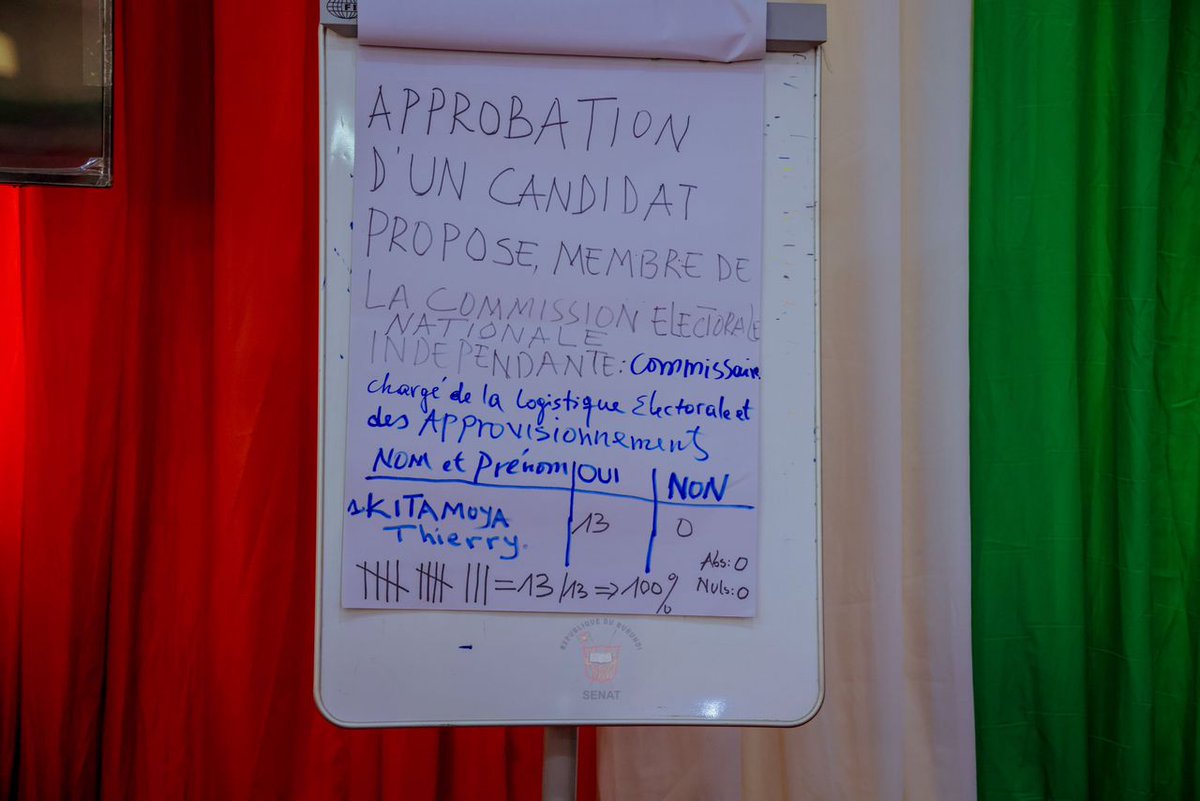 APPROBATION
D'UN CANDIDAT
PROPOSE, MEMBRE DE
LA COMMISSION ELECTORALE
NATIONALE
INDEPENDANTE: Commissaire
chargé de la Logistique Electorale et
des APPROVISIONNEMENTS
NOM et Prénom OUI NON
1. KITAMOYA 13 0
Thierry.
Abs: 0
= 13/13 => 100%
Nuls: 0
REPUBLIQUE DU BURUNDI
SENAT